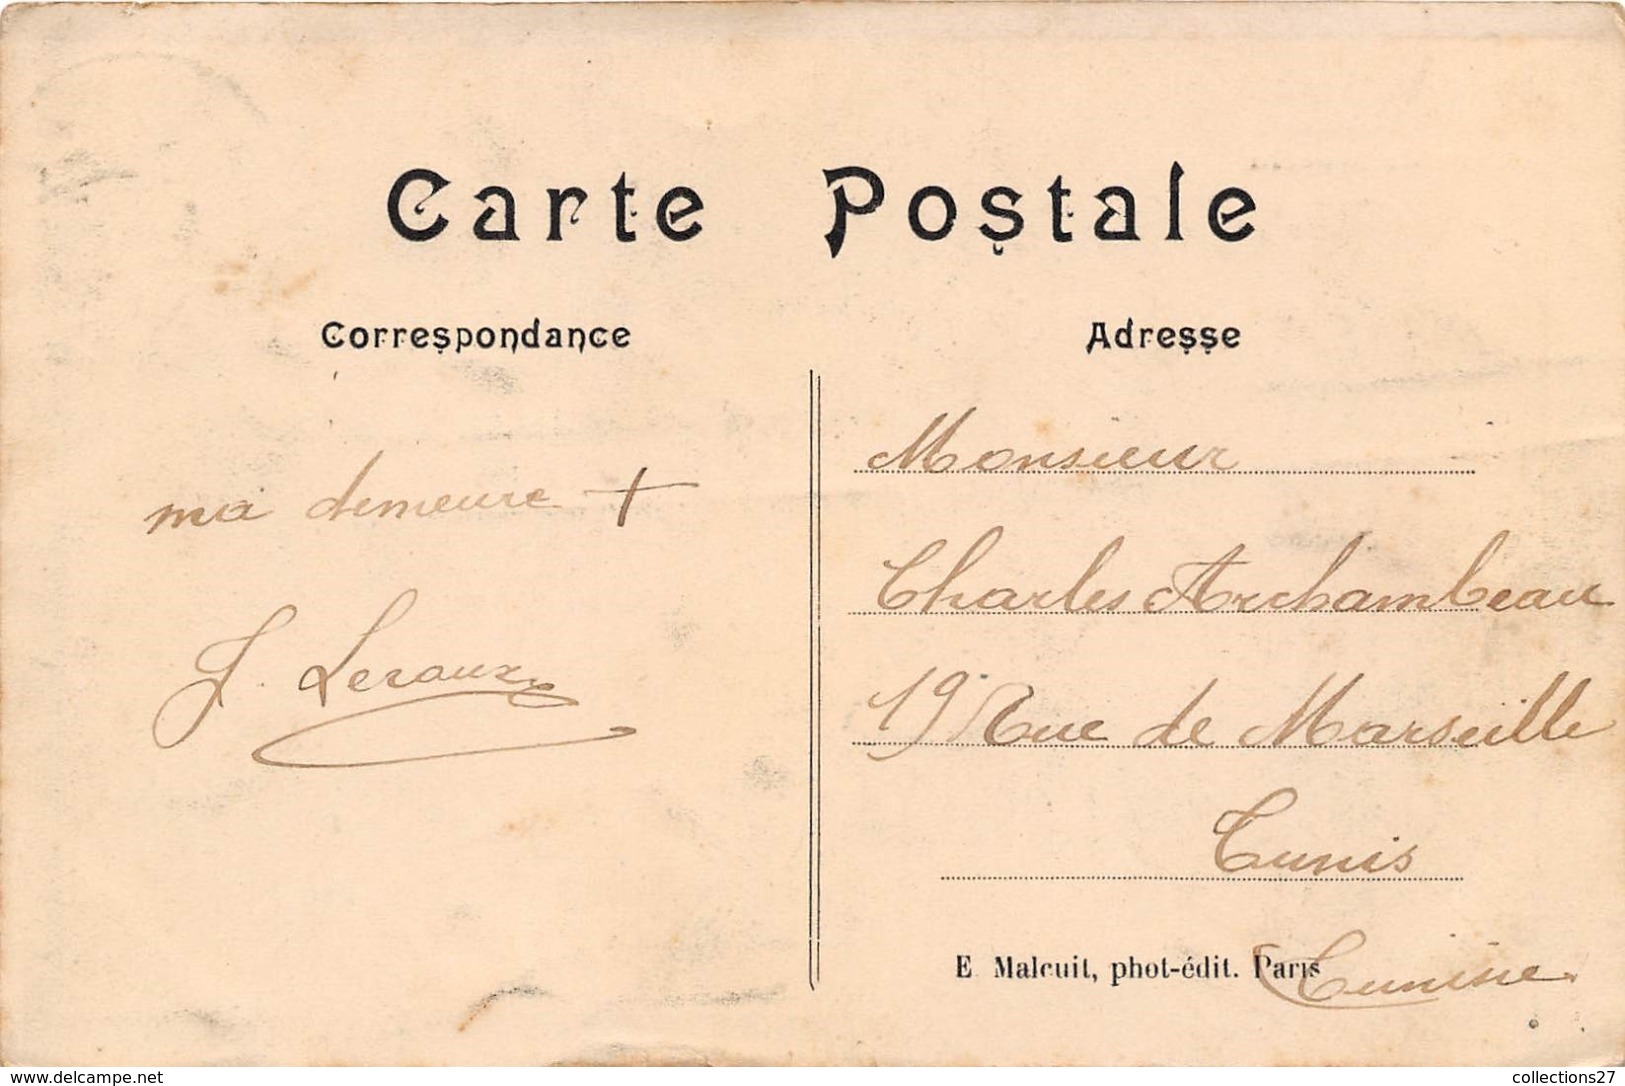 Carte Postale
Correspondance
ma demeure +
J. Leroux
Adresse
Monsieur
Charles Archambeau
19 Rue de Marseille
Tunis
Tunisie
E. Malcuit, phot-édit. Paris
www.delcampe.net
collections27